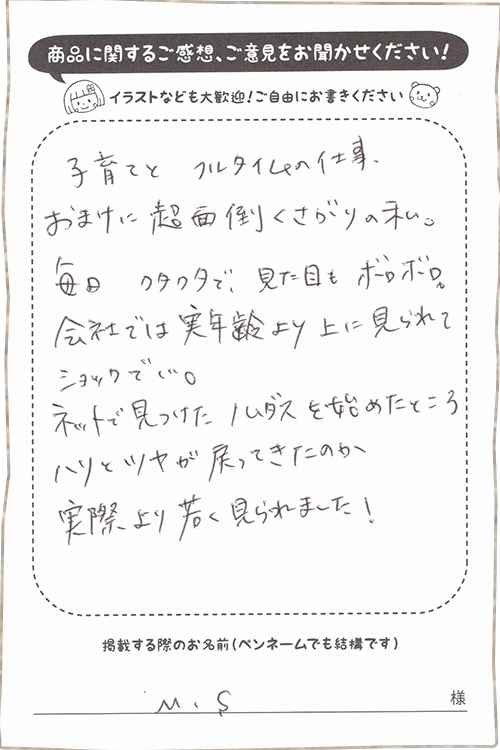 商品に関するご感想、ご意見をお聞かせください！
イラストなども大歓迎！ご自由にお書きください
子育てと フルタイムの仕事、
おまけに 超面倒くさがりの私。
毎日 クタクタで、見た目も ボロボロ。
会社では実年齢より上に見られて
ショックでい。
ネットで見つけた ハダスを始めたところ
ハリとツヤが戻ってきたのか
実際より若く見られました！
掲載する際のお名前(ペンネームでも結構です)
M.S 様